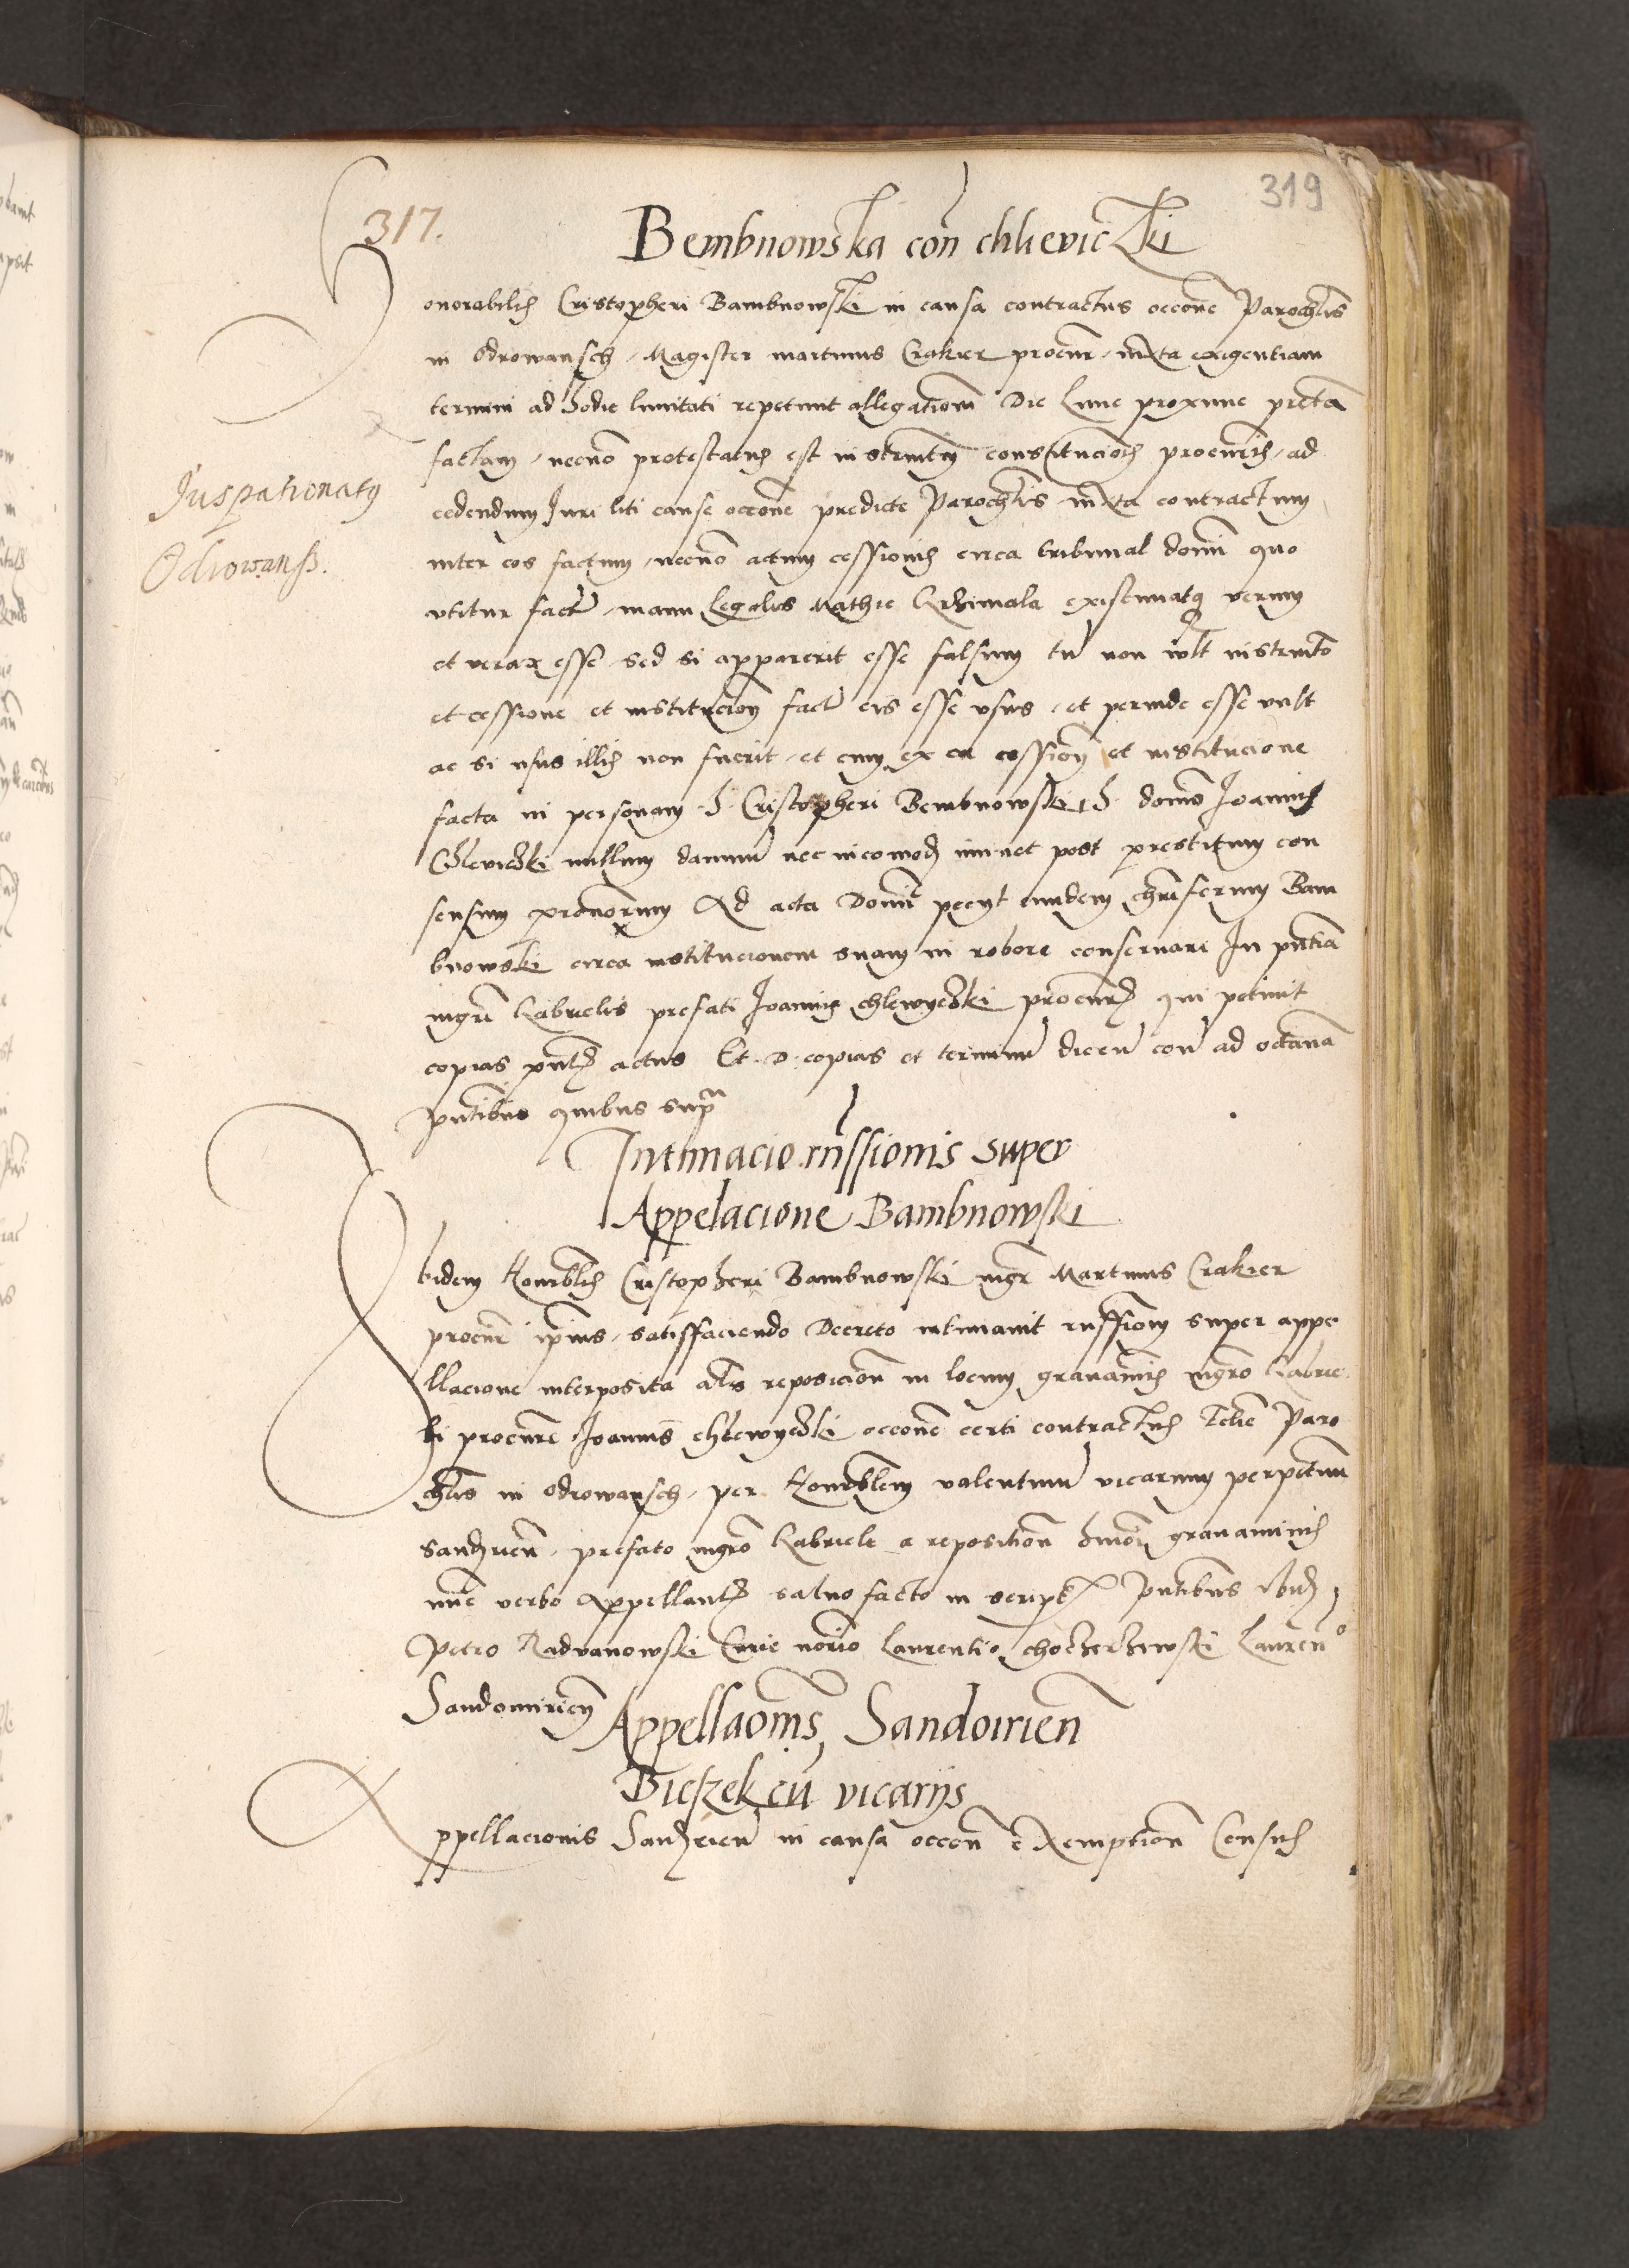 319
317.
Bembnowska con chlievicʒki
Honorabilis Cristopheri Bambnowski in causa contractus occone Parochlis
in Odrowansch, Magister martinus Crakier procur, iuxta exigentiam
termini ad hodie limitati repetiit allegationem Die Lune proxime preta
factam, necno protestatus est instrmtum constitucionis procuris, ad
cedendum Juri liti cause occone predicte Parochlis iuxta contractum
inter eos factum, necno actum cessionis circa tribunal domini quo
vtitur facto, manu legalis Mathie existimatq verum
et verax esse, sed si apparerit esse falsum tu non wlt instrmto
et cessione et institucion facto eis esse vsus, et perinde esse vult
ac si usus illis non fuerit, et cum ex ea cession et institucione
facta in personam h. Cristopheri Bembnowski, h. doms Joannis
Chlevicʒki nullum damnu nec incomod iminet post prestitum con
sensum pronorum Ad acta Domi petyt eundem chriferum Bam
bnowski circa institucionem suam in robore conseruari In pntia
mgri Gabrielis prefati Joannis chlewycʒki procuris qui petiuit
copias pntis actus Et. D. copias et terminu dicen con ad octaua
pntibus quibus supra
Intimacio missionis super
Appelacione Bambnowski
Ibidem Honorblis Cristopheri Bambnowski mgr Martinus Crakier
procur ipius, satisfaciendo Decreto intimauit super appe
llacione interposita als reposicion in locum grauaminis mgro Gabrie
li procure Joannis chlewycʒki occone certi contractus Eclie Paro
chlis in Odrowansch, per Honorblem valentinu vicarium perpetuu
sandrien, prefato mgro Gabriele a reposition hmoi grauaminis
nunc verbo appellantis saluo facto in script pntibus ibid
Petro Radvanowski Curie norio Laurentio Laurenº
Sandomirien
Juspatronatq
Odrowanß.
Appellaoms, Sandoirien
Bieszek cu vicarijs
Appellacionis Sandrien in causa occon exemption Census